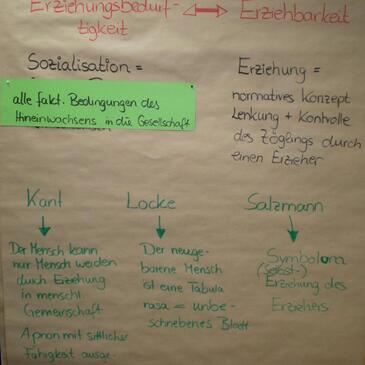 Erziehungsbedürf- ⟺ Erziehbarkeit
tigkeit
Sozialisation =
alle fakt. Bedingungen des
Hineinwachsens in die Gesellschaft
Erziehung =
normatives Konzept
Lenkung + Kontrolle
des Zöglings durch
einen Erzieher
Kant
Der Mensch kann
nur Mensch werden
durch Erziehung
in menschl
Gemeinschaft
Apriori mit sittlicher
Fähigkeit ausge-
Locke
Der neuge-
borene Mensch
ist eine Tabula
rasa = unbe-
schriebenes Blatt
Salzmann
Symbolum
(Selbst-)
Erziehung des
Erziehers